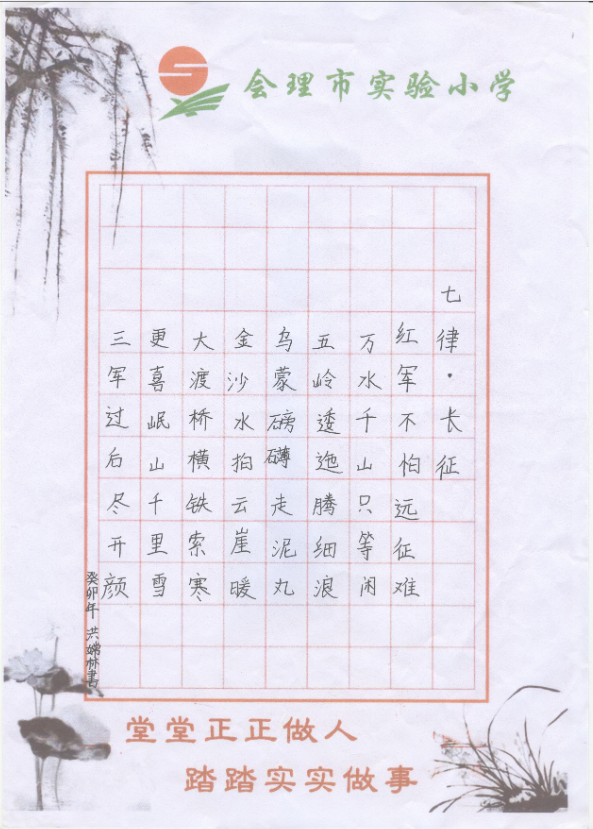 会理市实验小学
七律·长征
红军不怕远征难
万水千山只等闲
五岭逶迤腾细浪
乌蒙磅礴走泥丸
金沙水拍云崖暖
大渡桥横铁索寒
更喜岷山千里雪
三军过后尽开颜
癸卯年 洪 林書
堂堂正正做人
踏踏实实做事